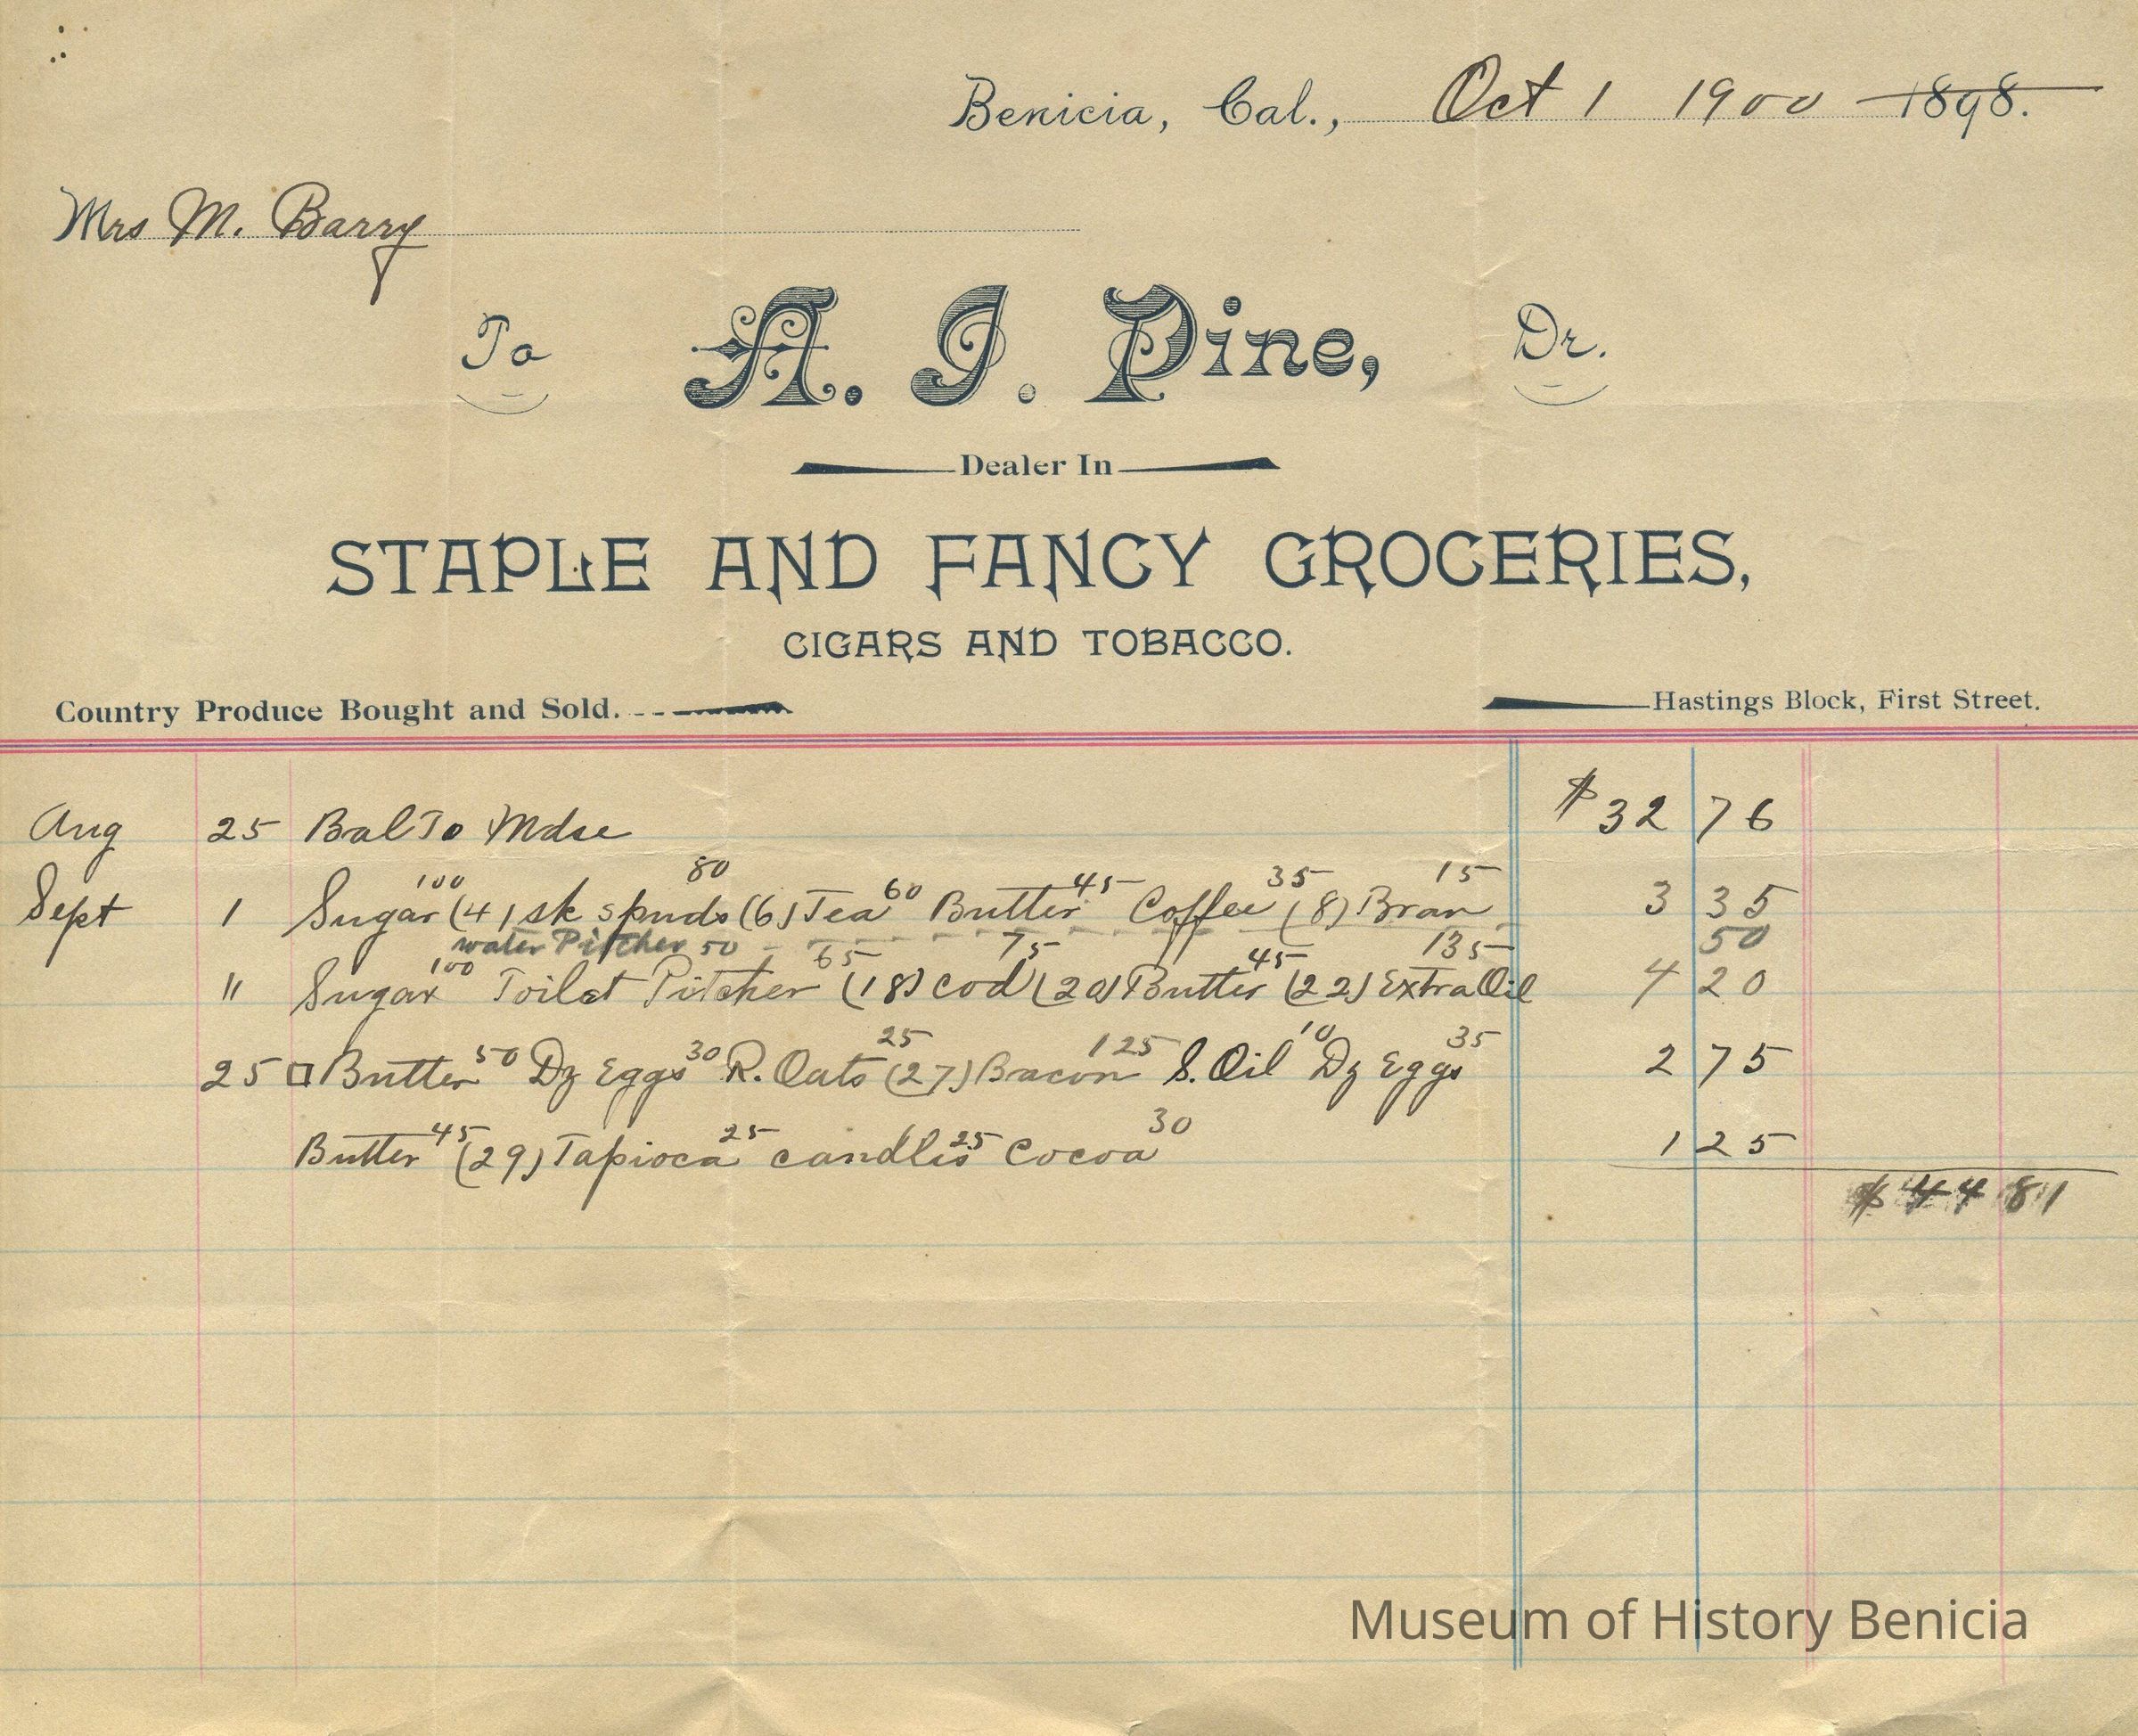 Benicia, Cal., Oct 1 1900 1898.
Mrs M. Barry
To A. J. Pine, Dr.
Dealer In
STAPLE AND FANCY GROCERIES,
CIGARS AND TOBACCO.
Country Produce Bought and Sold. Hastings Block, First Street.
Aug 25 Bal To Mdse $32 76
Sept 1 Sugar 100 (4) sk spuds 80 (6) Tea 60 Butter 45 Coffee 35 (8) Bran 15 3 35
water Pitcher 50 50
" Sugar 100 Toilet Pitcher 65 (18) Cod 75 (20) Butter 45 (22) Extra Oil 135 4 20
25 Butter 50 Dz Eggs 30 R. Oats 25 (27) Bacon 125 S. Oil 10 Dz Eggs 35 2 75
Butter 45 (29) Tapioca 25 candles 25 Cocoa 30 1 25
$ 44 81
Museum of History Benicia